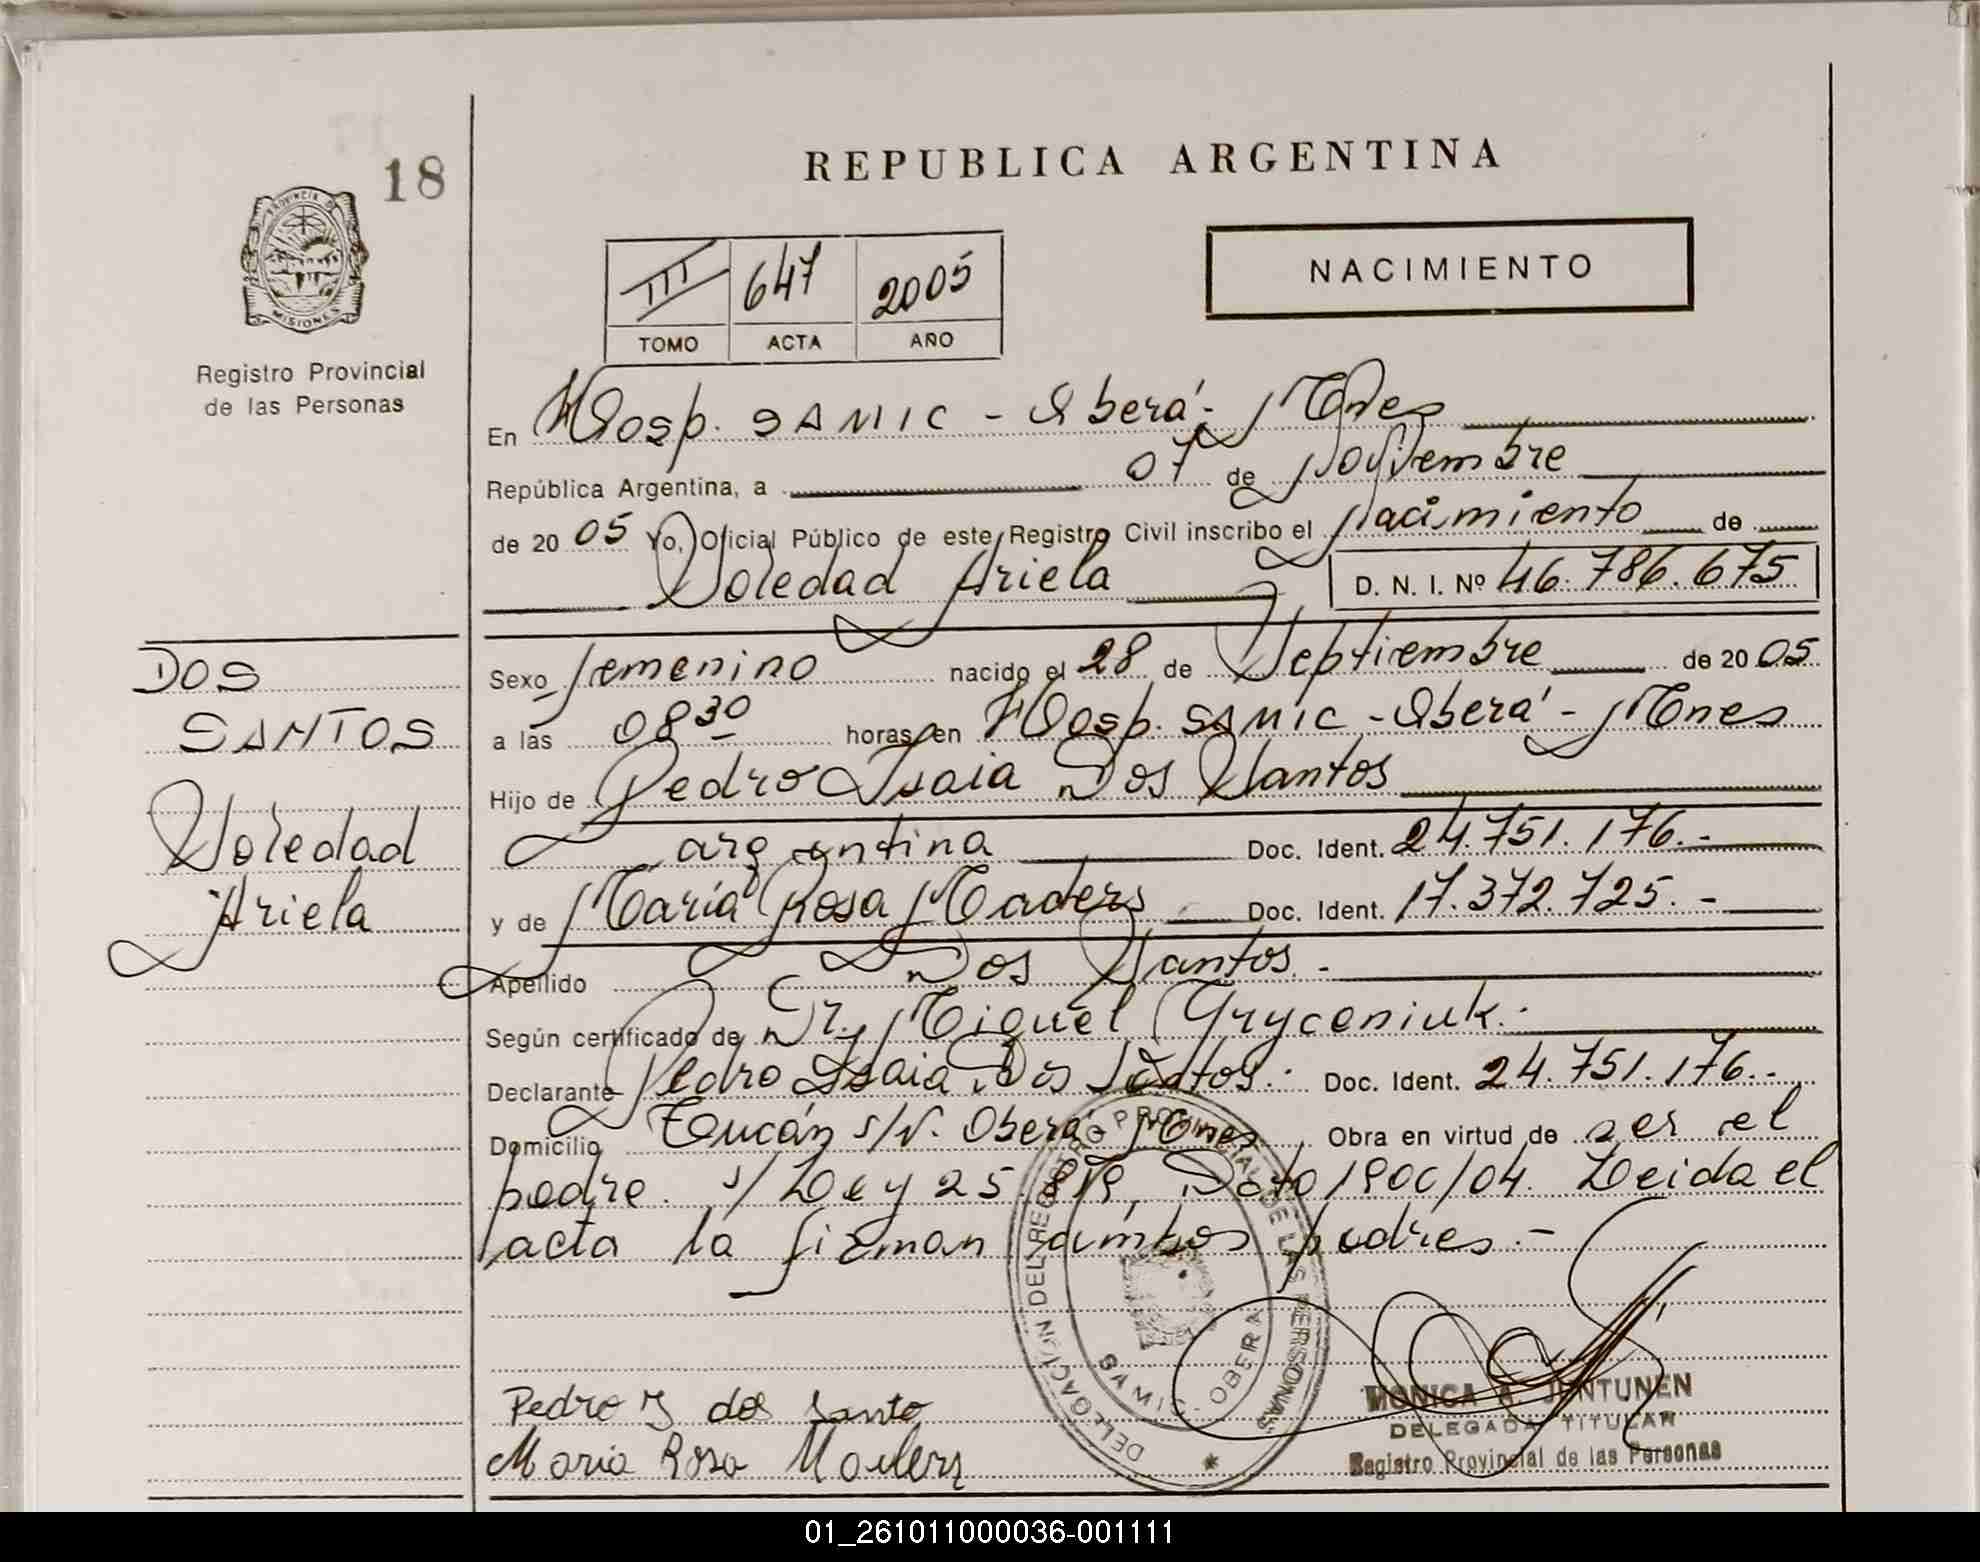 18
REPUBLICA ARGENTINA
PROVINCIA D
MISIONES
Registro Provincial
de las Personas
III 647 2005
TOMO ACTA AÑO
NACIMIENTO
En Hosp. SAMIC - Oberá - Mnes
República Argentina, a 07 de Noviembre
de 20 05 Yo, Oficial Público de este Registro Civil inscribo el Nacimiento de
Soledad Ariela D. N. I. Nº 46.786.675
DOS
SANTOS
Soledad
Ariela
Sexo femenino nacido el 28 de Septiembre de 20 05
a las 08 30 horas en Hosp. SAMIC - Oberá - Mnes
Hijo de Pedro Isaia Dos Santos
argentina Doc. Ident. 24.751.176.-
y de María Rosa Maders Doc. Ident. 17.372.725.-
Apellido Dos Santos.-
Según certificado de Dr. Miguel Gryceniuk.-
Declarante Pedro Isaia Dos Santos.- Doc. Ident. 24.751.176.-
Domicilio Tucán s/N. Oberá Mnes Obra en virtud de ser el
padre. s/ Ley 25.819, Dcto 1900/04. Leida el
acta la firman ambos padres.-
DELEGACION DEL REGISTRO PROVINCIAL DE LAS PERSONAS
SAMIC - OBERA
Pedro I dos Santo
Maria Rosa Maders
MONICA A. JUNTUNEN
DELEGADA TITULAR
Registro Provincial de las Personas
01_261011000036-001111